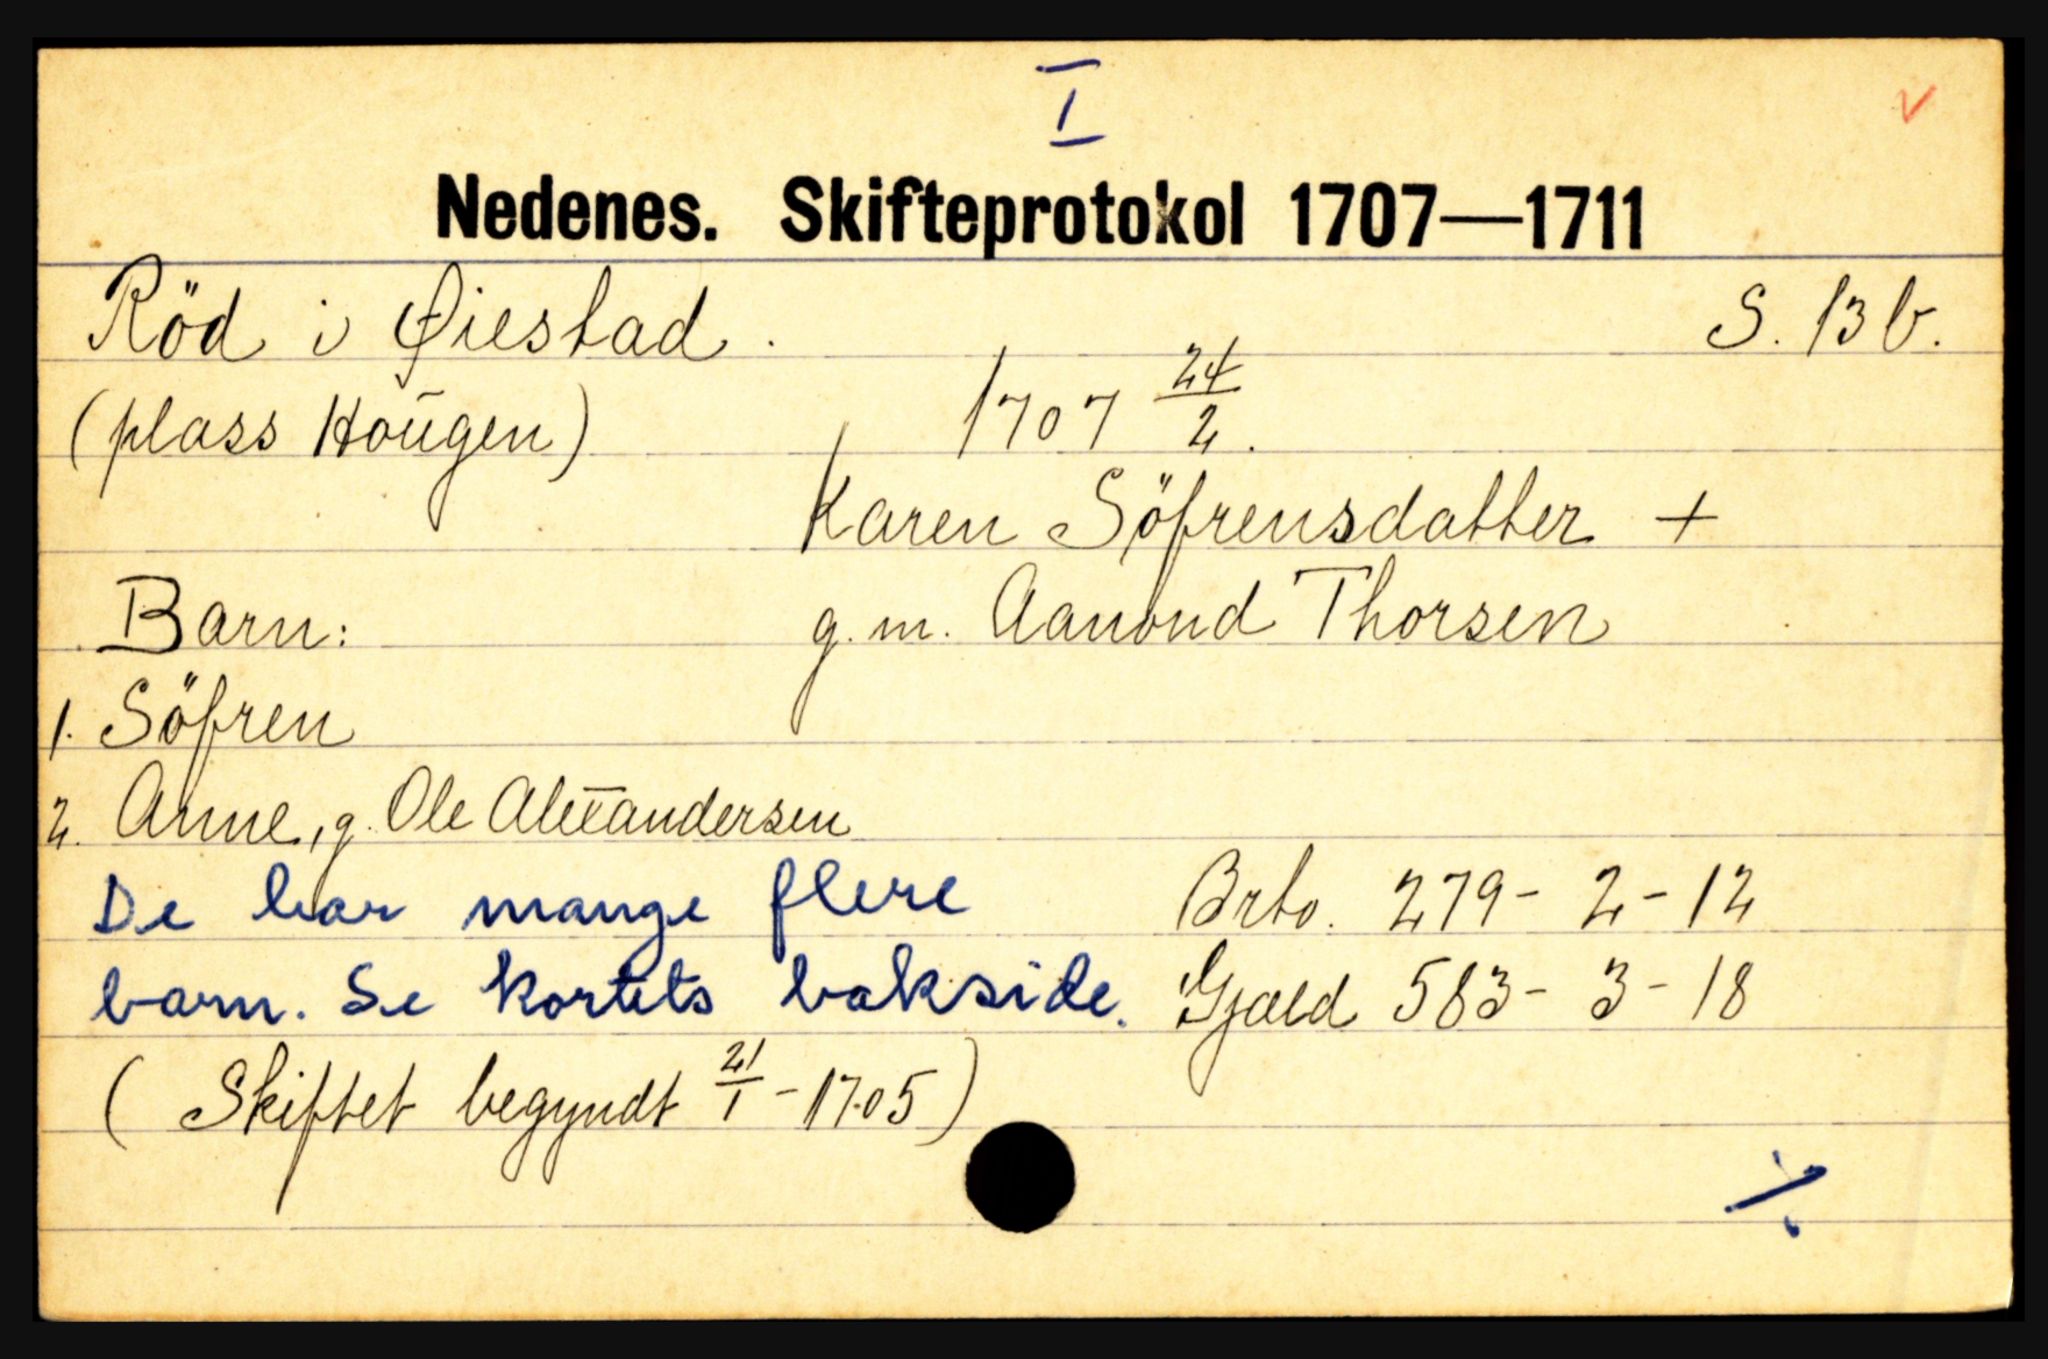 I
Nedenes. Skifteprotokol 1707—1711
Röd i Øiestad. S. 13 b.
(plass Hoŭgen) 1707 24/2.
Karen Söfrensdatter +
Barn: g. m. Aanond Thorsen
1. Söfren
2. Anne, g. Ole Alexandersen
De har mange flere Brto. 279 - 2 - 12
barn. Se kortets bakside. Gjæld 583 - 3 - 18
(Skiftet begyndt 21/1 - 1705)